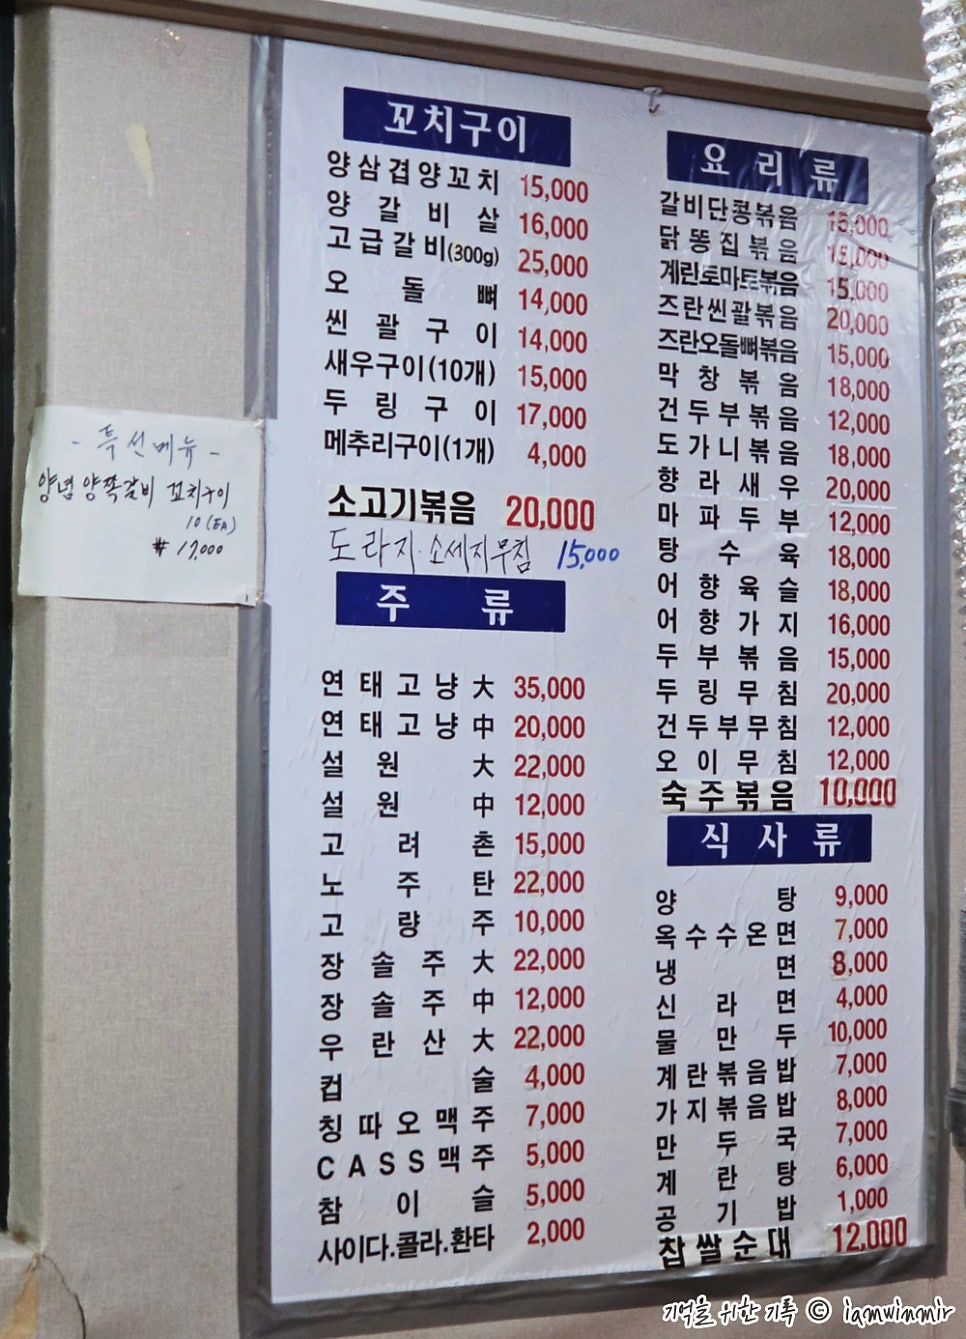 - 특선메뉴 -
양념 양쪽갈비 꼬치구이
10 (EA)
₩ 17,000
꼬치구이
양삼겹양꼬치 15,000
양갈비살 16,000
고급갈비(300g) 25,000
오돌뼈 14,000
씬괄구이 14,000
새우구이(10개) 15,000
두링구이 17,000
메추리구이(1개) 4,000
소고기볶음 20,000
도라지.소세지무침 15,000
주류
연태고냥大 35,000
연태고냥中 20,000
설원大 22,000
설원中 12,000
고려촌 15,000
노주탄 22,000
고량주 10,000
장솔주大 22,000
장솔주中 12,000
우란산大 22,000
컵술 4,000
칭따오맥주 7,000
CASS맥주 5,000
참이슬 5,000
사이다.콜라.환타 2,000
요리류
갈비단콩볶음 15,000
닭똥집볶음 15,000
계란토마토볶음 15,000
즈란씬괄볶음 20,000
즈란오돌뼈볶음 15,000
막창볶음 18,000
건두부볶음 12,000
도가니볶음 18,000
향라새우 20,000
마파두부 12,000
탕수육 18,000
어향육슬 18,000
어향가지 16,000
두부볶음 15,000
두링무침 20,000
건두부무침 12,000
오이무침 12,000
숙주볶음 10,000
식사류
양탕 9,000
옥수수온면 7,000
냉면 8,000
신라면 4,000
물만두 10,000
계란볶음밥 7,000
가지볶음밥 8,000
만두국 7,000
계란탕 6,000
공기밥 1,000
찹쌀순대 12,000
기억을 위한 기록 © iamwinmir